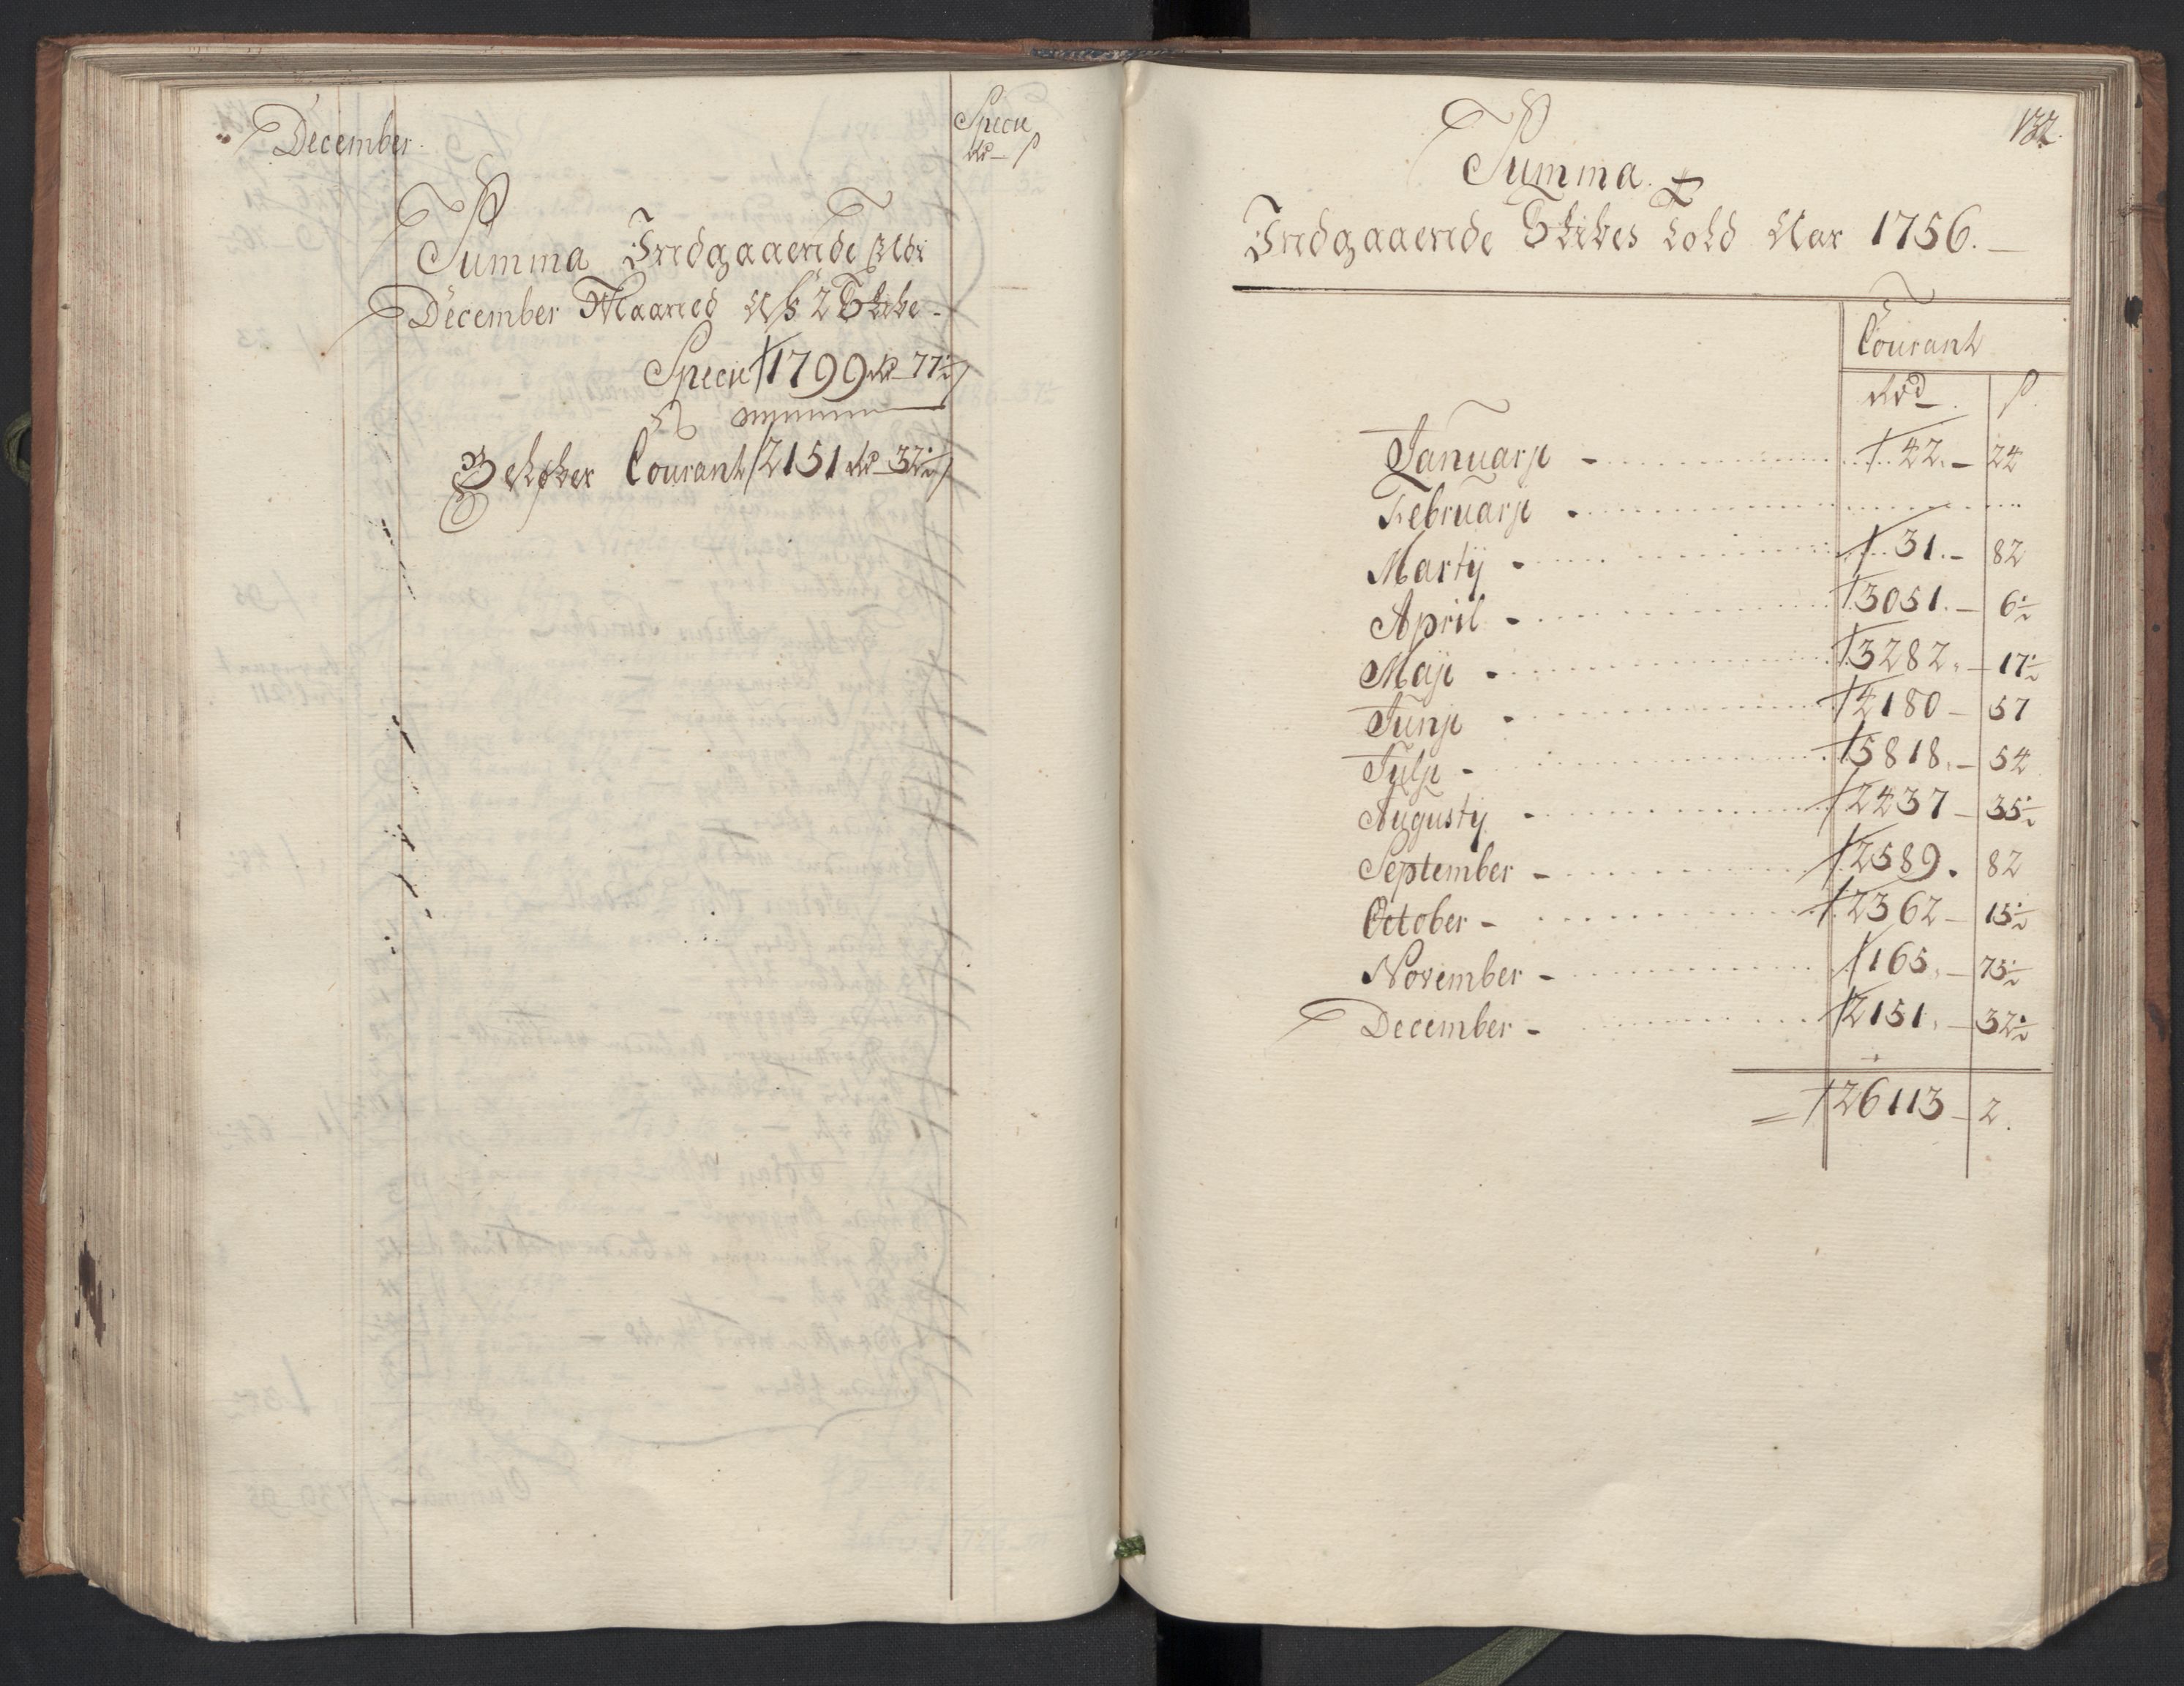 December.
Specie
Rd - ß
Summa Indgaaende udi
December Maaned af 2 Skibe -
Specie 1799 Rd 77½
Beløber Courant 2151 Rd 32½
132.
Summa.
Indgaaende Skibes Told Aar 1756.
Courant
Rd ß.
Januarji - 42. - 24
Februarji -
Martij - 31. - 82
April - 3051. - 6½
Maji - 3282. - 17½
Junji - 4180 - 57
Julji - 5818. - 54
Augustij - 2437 - 35½
September - 2589. 82
October - 2362 - 15½
November - 165. - 75½
December - 2151. - 32½
= 26113 - 2.